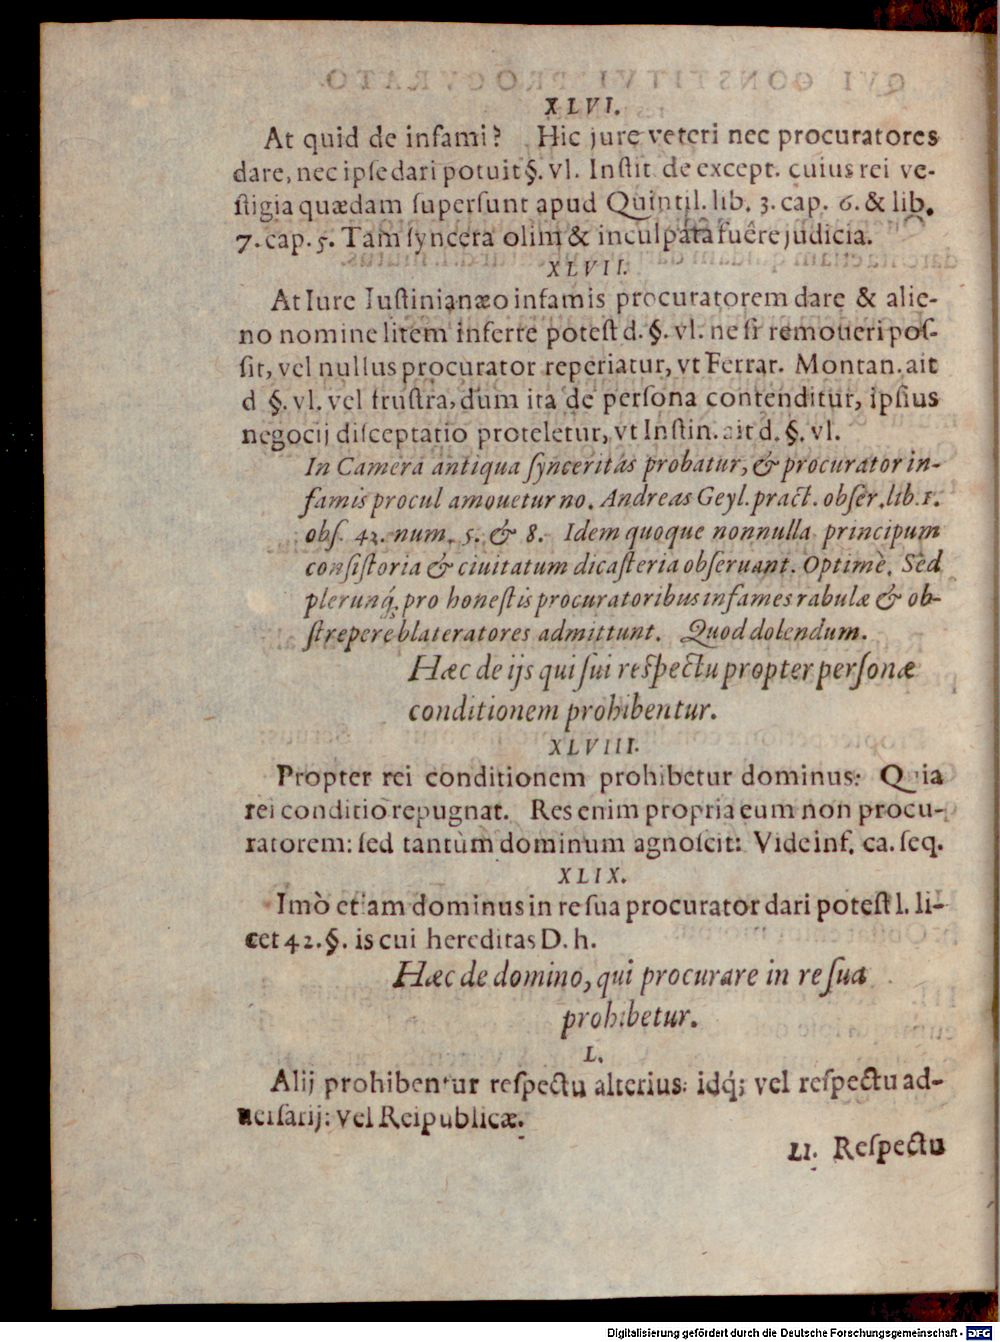 XLVI.
At quid de infami? Hic jure veteri nec procuratores
dare, nec ipse dari potuit §. vl. Instit. de except. cuius rei ve-
stigia quædam supersunt apud Quintil. lib. 3. cap. 6. & lib.
7. cap. 5. Tam syncera olim & inculpata fuêre judicia.
XLVII.
At Iure Iustinianæo infamis procuratorem dare & alie-
no nomine litem inferre potest d. §. vl. ne si remoueri pos-
sit, vel nullus procurator reperiatur, vt Ferrar. Montan. ait
d §. vl. vel frustra, dum ita de persona contenditur, ipsius
negocij disceptatio proteletur, vt Instin. ait d. §. vl.
In Camera antiqua synceritas probatur, & procurator in-
famis procul amouetur no. Andreas Geyl. pract. obser. lib. 1.
obs. 43. num. 5. & 8. Idem quoque nonnulla principum
consistoria & ciuitatum dicasteria obseruant. Optimè. Sed
plerunq́; pro honestis procuratoribus infames rabulæ & ob-
strepere blateratores admittunt. Quod dolendum.
Hæc de ijs qui sui respectu propter personæ
conditionem prohibentur.
XLVIII.
Propter rei conditionem prohibetur dominus: Quia
rei conditio repugnat. Res enim propria eum non procu-
ratorem: sed tantùm dominum agnoscit: Vide inf. ca. seq.
XLIX.
Imò etiam dominus in re sua procurator dari potest l. li-
cet 42. §. is cui hereditas D. h.
Hæc de domino, qui procurare in re sua
prohibetur.
L.
Alij prohibentur respectu alterius: idq́; vel respectu ad-
uersarij: vel Reipublicæ.
LI. Respectu
Digitalisierung gefördert durch die Deutsche Forschungsgemeinschaft - DFG